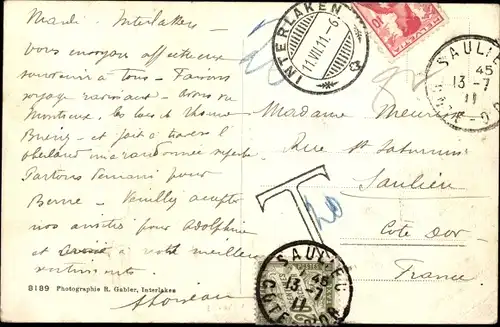 Mardi. Interlaken
Vous envoyons affectueux
souvenir à tous - Faisons
voyage ravissant - avons vu
Montreux, les lacs de Thoune
Brienz et fait à travers l'
oberland une randonnée superbe
Partons demain pour
Berne - Veuillez accepter
nos amitiés pour Adolphine
et à votre meilleurs
sentiments
8189 Photographie R. Gabler, Interlaken
INTERLAKEN
11.VII.11.-6
SAULIEU
45
13-7
11
COTE-D'OR
Madame
Rue St Saturnin
Saulieu
Côte d'or
France
T
20
SAULIEU
45
13-7
11
COTE-D'OR